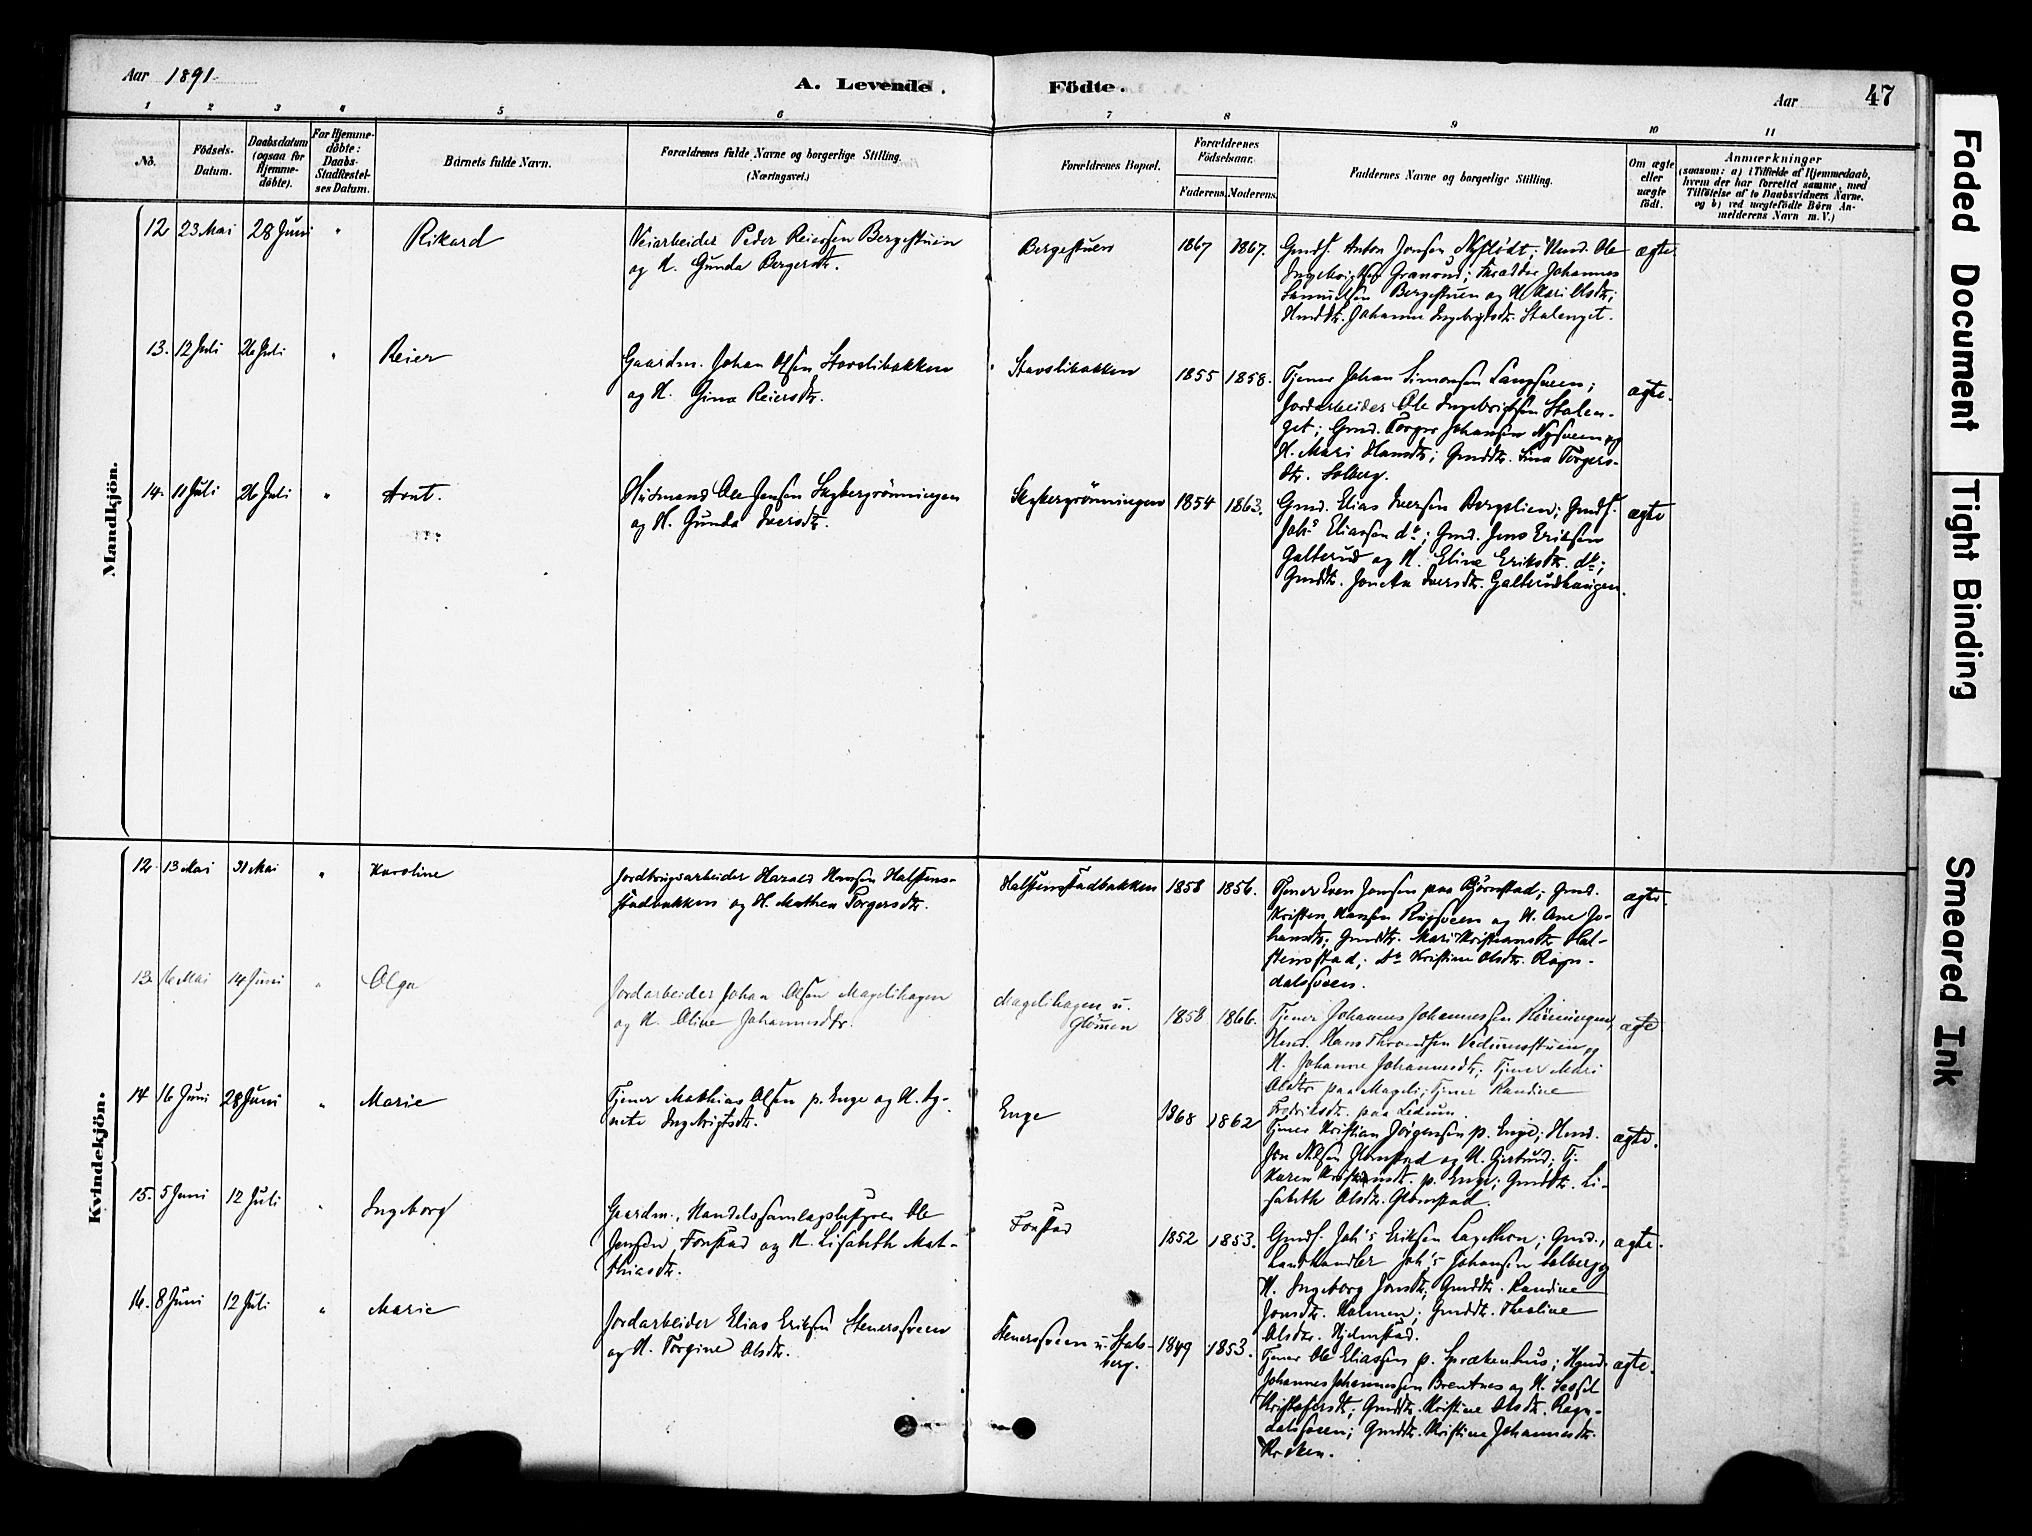 Aar 1891
A. Levende Födte.
Aar
47
1 2 3 4 5 6 7 8 9 10 11
No.
Födsels-Datum.
Daabsdatum (ogsaa for Hjemme-döbte).
For Hjemme-döbte: Daabs-Stadfæstel-ses Datum.
Barnets fulde Navn.
Forældrenes fulde Navne og borgerlige Stilling.
(Næringsvei.)
Forældrenes Bopæl.
Forældrenes Födselsaar.
Faderens. Moderens.
Faddernes Navne og borgerlige Stilling.
Om ægte eller uægte födt.
Anmærkninger
(saasom: a) i Tilfælde af Hjemmedaab,
hvem der har forrettet samme, med
Tilföielse af to Daabsvidners Navne,
og b) ved uægtefödte Börn An-
melderens Navn m. V.)
Mandkjön.
12 23 Mai 28 Juni " Rikard
Veiarbeider Peder Reiersen Bergestuen
og H. Gunda Bergersdtr.
Bergestuen 1867 1867.
Gmds. Anton Jonsen Nyflödt; Hmd. Ole
Granrud; Johannes
Samuelsen Bergestuen og H. Kari Olsdtr;
Hmddtr. Johanne Ingebrigtsdtr. Stalenget.
ægte.
13. 12 Juli 26 Juli " Reier
Gaardm. Johan Olsen Stavslibakken
og H. Gina Reiersdtr.
Stavslibakken 1855 1858.
Tjener Johan Simensen Langsveen;
Jordarbeider Ole Ingebrigtsen Stalen-
get; Gmd. Torger Johansen Nysveen og
H. Mari Hansdtr; Gmddtr. Lina Torgers-
dtr. Solberg.
ægte.
14. 11 Juli 26 Juli " Arnt.
Husmand Ole Jensen Skybergrönningen
og H. Gunda Iversdtr.
Skybergrönningen 1854 1863.
Gmd. Elias Iversen Bergslien; Gmds.
Johs Eliassen do; Gmd. Jens Eriksen
Galterud og H. Eline Eriksdtr. do;
Gmddtr. Joneta Iversdtr. Galterudhaugen.
ægte
Kvindekjön.
12. 13 Mai 31 Mai " Karoline
Jordbrugsarbeider Harald Hansen Halstens-
stadbakken og H. Mathea Torgersdtr.
Halstenstadbakken 1858 1856.
Tjener Even Jensen paa Björnstad; Gmd.
Kristen Hansen Rugsveen og H. Ane Jo-
hansdtr; Gmddtr. Mari Kristiansdtr Hal-
stenstad; do Kristine Olsdtr. Ragn-
dalssveen.
ægte.
13. 16 Mai 14 Juni " Olga
Jordarbeider Johan Olsen Magelihagen
og H. Oline Johannesdtr.
Magelihagen u.
Glömen 1858 1866.
Tjener Johannes Johannessen Rönningen,
Hmd. Hans Throndsen Vedumsstuen og
H. Johanne Johannesdtr; Tjener Mari
Olsdtr paa Mageli; Tjener Randine
Fredriksdtr. paa Lidum.
ægte
14 16 Juni 28 Juni " Marie
Tjener Mathias Olsen p. Enge og H. Ag-
nete Ingebrigtsdtr.
Enge 1868 1862
Tjener Kristian Jörgensen p. Enge; Hmd.
Jon Nilsen Glomstad og H. Gjertrud; Tj.
Karen Kristiansdtr. p. Enge; Gmddtr. Li-
sabeth Olsdtr. Glomstad.
ægte.
15. 5 Juni 12 Juli " Ingeborg
Gaardm., Handelssamlagsbestyrer Ole
Jensen Fonstad og H. Lisabeth Mat-
thiasdtr.
Fonstad 1852 1853.
Gmds. Joh's Eriksen; Gmd.,
Landhandler Joh's Johansen Solberg og
H. Ingeborg Jonsdtr; Gmddtr. Randine
Jonsdtr. Kolmen; Gmddtr. Thealine
Olsdtr. Hjelmstad.
ægte.
16. 8 Juni 12 Juli " Marie
Jordarbeider Elias Eriksen Stenerssveen
og H. Torgine Olsdtr.
Stenerssveen u. Stals-
berg. 1849 1853.
Tjener Ole Eliassen p. Sprækenhus; Hmd.
Johannes Johannessen Brentnes og H. Sessel
Kristofersdtr; Gmddtr. Kristine Olsdtr. Ragn-
dalssveen; Gmddtr. Kristine Johannesdtr.
Kroken.
ægte.
Faded Document
Tight Binding
Smeared Ink